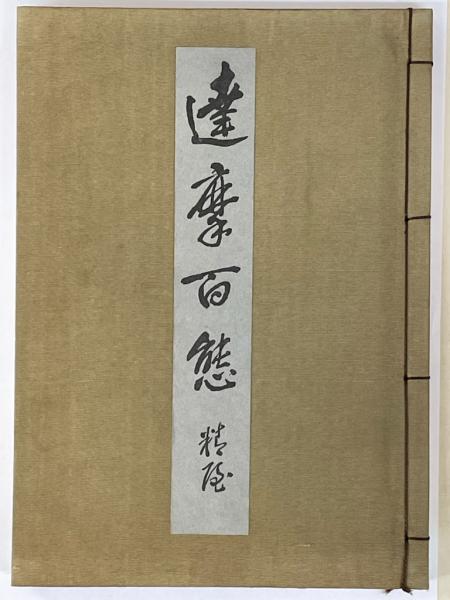 達摩百態
精陀